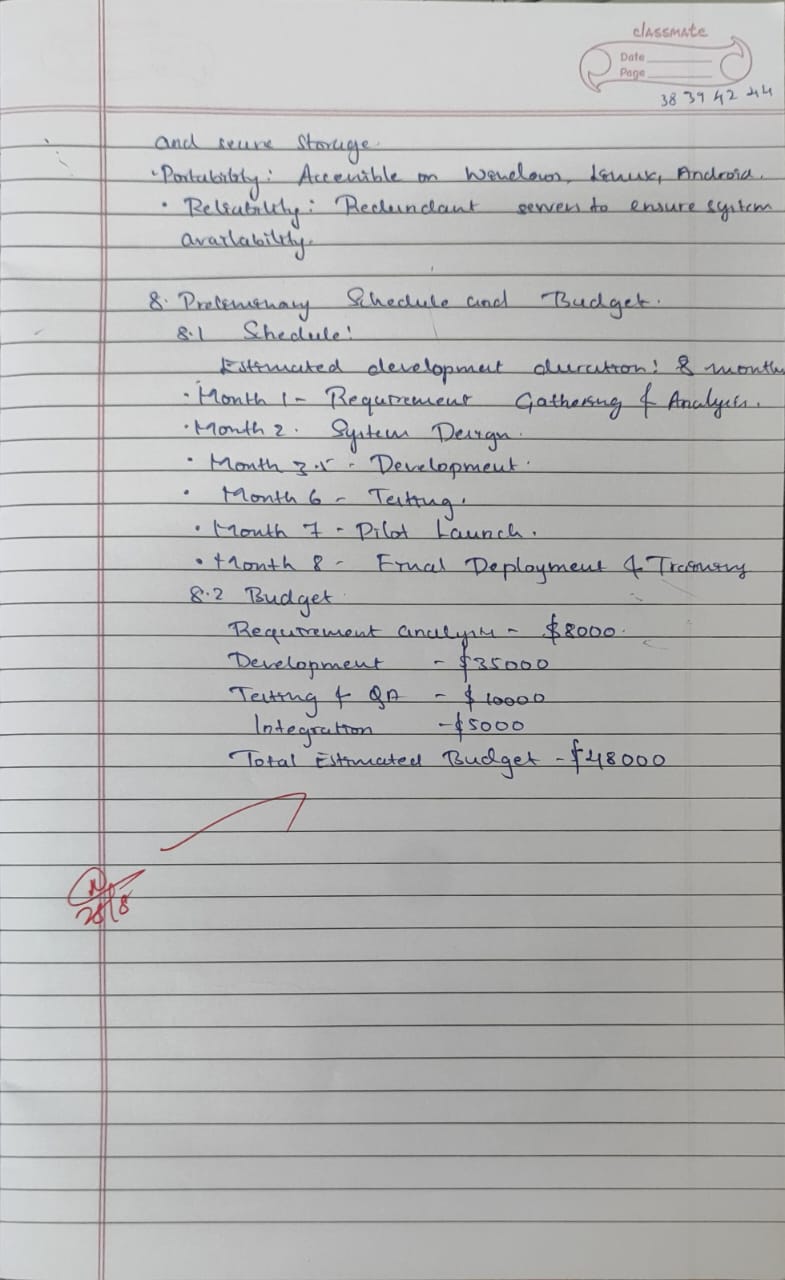 classmate
Date
Page
38 39 42 44
and secure storage.
• Portability: Accessible on Windows, Linux, Android.
• Reliability: Redundant servers to ensure system
availability.
8. Preliminary Schedule and Budget.
8.1 Schedule:
Estimated development duration: 8 months
• Month 1 - Requirement Gathering & Analysis.
• Month 2. System Design.
• Month 3-5 - Development.
• Month 6 - Testing.
• Month 7 - Pilot Launch.
• Month 8 - Final Deployment & Training
8.2 Budget
Requirement analysis - $8000.
Development - $35000
Testing & QA - $10000
Integration - $5000
Total Estimated Budget - $48000
28/8